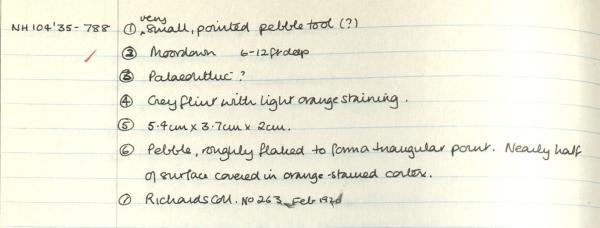 NH 104'35-788 ① very small, pointed pebble tool (?)
② Moordown 6-12ft deep
③ Palaeolithic ?
④ Grey flint with light orange staining.
⑤ 5.4cm x 3.7cm x 2cm.
⑥ Pebble, roughly flaked to form a triangular point. Nearly half
of surface covered in orange-stained cortex.
⑦ Richards Coll. No 263 Feb 1920